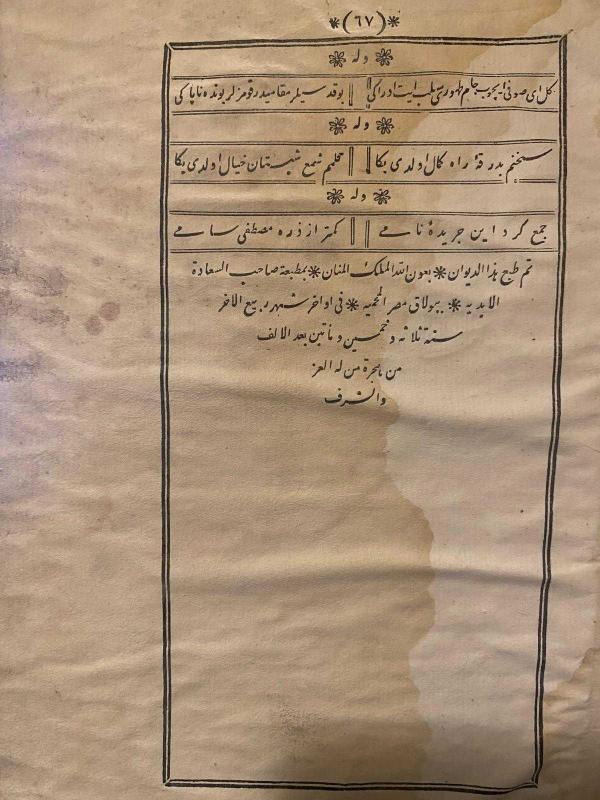 *(٦٧)*
* وله *
كل ای صوفی ایچوب جام طهوری سلب ایت ادراکی بوقد سیلر مقامیدر قومزلر بونده ناپاکی
* وله *
سخنم بدرقهٔ راه کمال اولدی بکا قلمم شمع شبستان خیال اولدی بکا
* وله *
جمع کرد این جریدهٔ نامی کمتر از ذره مصطفی سامی
تم طبع هذا الدیوان * بعون الله الملک المنان * بمطبعة صاحب السعادة
الابدیه * ببولاق مصر المحمیه * فی اواخر شهر ربیع الاخر
سنة ثلاثه وخمسین ومأتین بعد الالف
من هجرة من له العز
والشرف